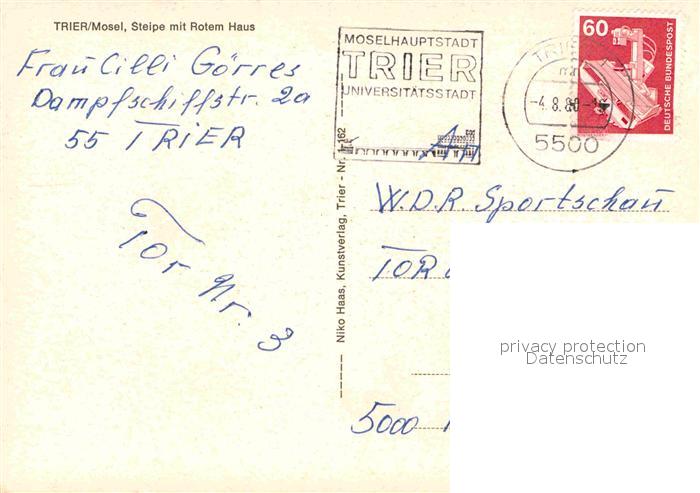 TRIER/Mosel, Steipe mit Rotem Haus
Frau Cilli Görres
Dampfschiffstr. 2a
55 TRiER
Tor Nr. 3
Niko Haas, Kunstverlag, Trier - Nr. 1-162
MOSELHAUPTSTADT
TRIER
UNIVERSITÄTSSTADT
TRIER
-4.8.80
5500
60
DEUTSCHE BUNDESPOST
An
W.D.R. Sportschau
TOR
5000
privacy protection
Datenschutz